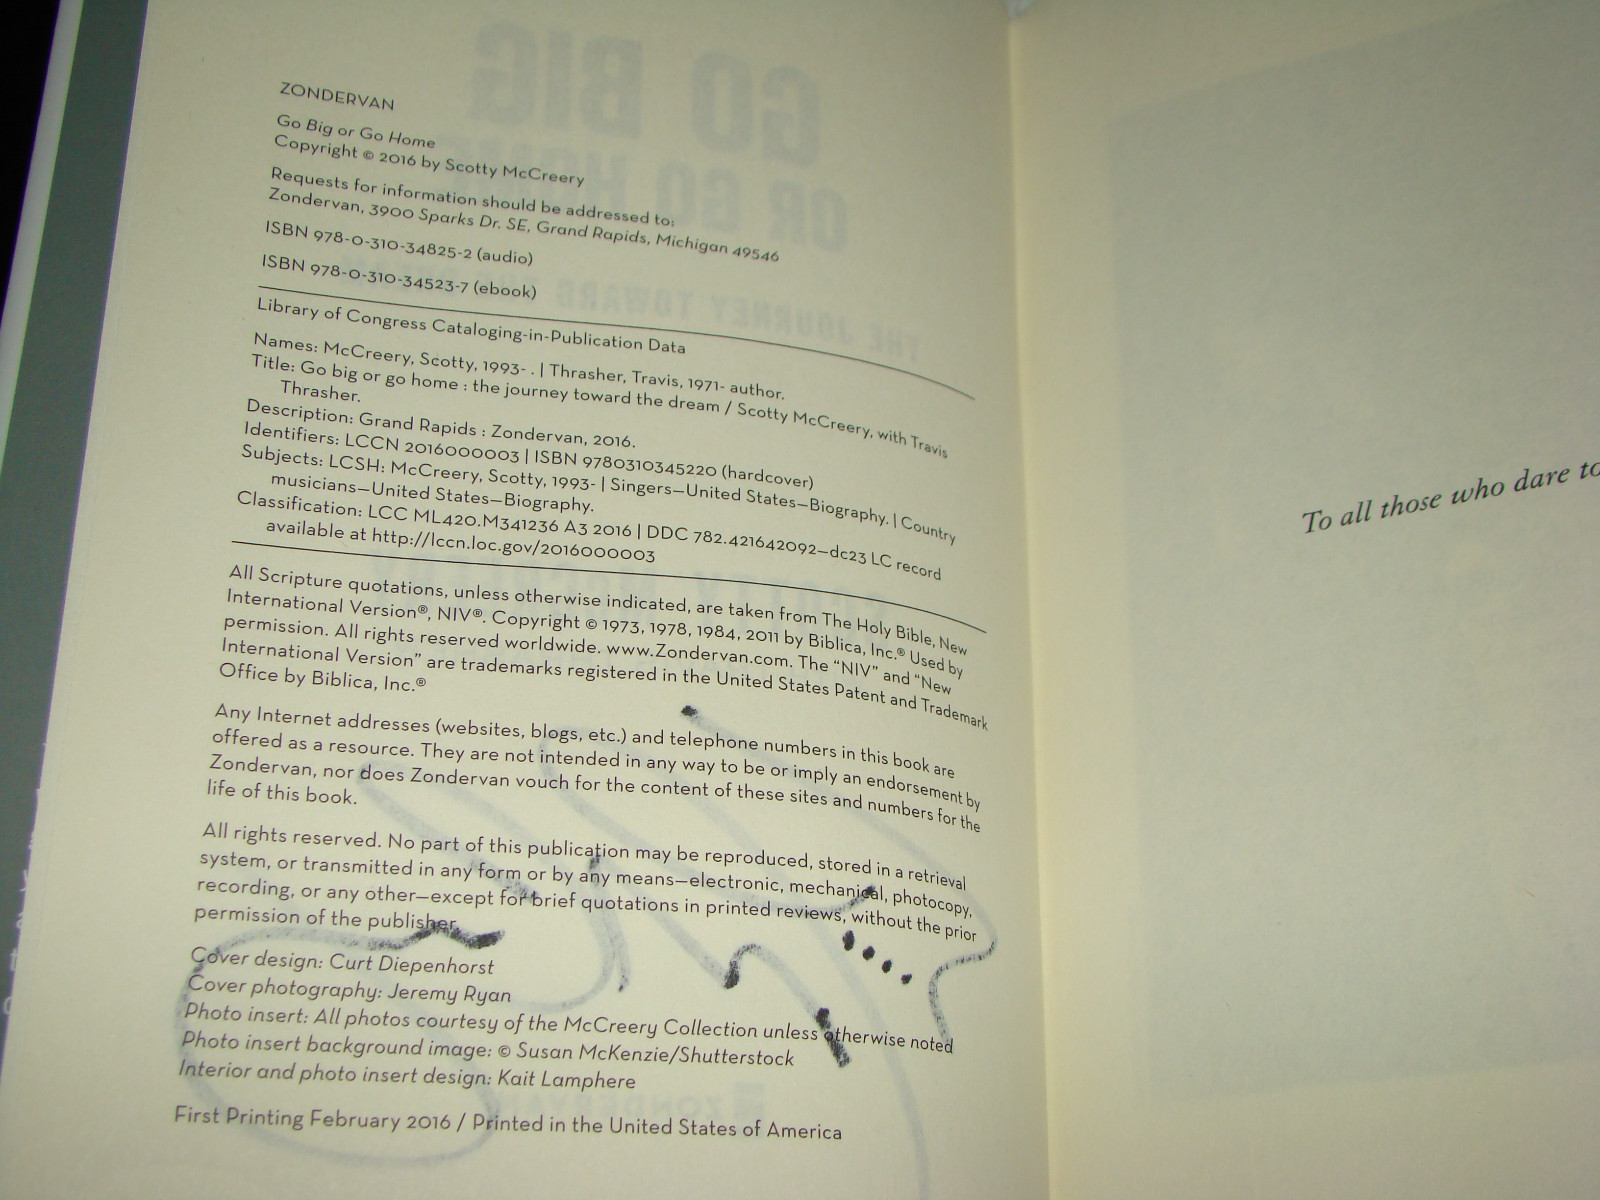 ZONDERVAN
Go Big or Go Home
Copyright © 2016 by Scotty McCreery
Requests for information should be addressed to:
Zondervan, 3900 Sparks Dr. SE, Grand Rapids, Michigan 49546
ISBN 978-0-310-34825-2 (audio)
ISBN 978-0-310-34523-7 (ebook)
Library of Congress Cataloging-in-Publication Data
Names: McCreery, Scotty, 1993- . | Thrasher, Travis, 1971- author.
Title: Go big or go home : the journey toward the dream / Scotty McCreery, with Travis
Thrasher.
Description: Grand Rapids : Zondervan, 2016.
Identifiers: LCCN 2016000003 | ISBN 9780310345220 (hardcover)
Subjects: LCSH: McCreery, Scotty, 1993- | Singers—United States—Biography. | Country
musicians—United States—Biography.
Classification: LCC ML420.M341236 A3 2016 | DDC 782.421642092—dc23 LC record
available at http://lccn.loc.gov/2016000003
All Scripture quotations, unless otherwise indicated, are taken from The Holy Bible, New
International Version®, NIV®. Copyright © 1973, 1978, 1984, 2011 by Biblica, Inc.® Used by
permission. All rights reserved worldwide. www.Zondervan.com. The “NIV” and “New
International Version” are trademarks registered in the United States Patent and Trademark
Office by Biblica, Inc.®
Any Internet addresses (websites, blogs, etc.) and telephone numbers in this book are
offered as a resource. They are not intended in any way to be or imply an endorsement by
Zondervan, nor does Zondervan vouch for the content of these sites and numbers for the
life of this book.
All rights reserved. No part of this publication may be reproduced, stored in a retrieval
system, or transmitted in any form or by any means—electronic, mechanical, photocopy,
recording, or any other—except for brief quotations in printed reviews, without the prior
permission of the publisher.
Cover design: Curt Diepenhorst
Cover photography: Jeremy Ryan
Photo insert: All photos courtesy of the McCreery Collection unless otherwise noted
Photo insert background image: © Susan McKenzie/Shutterstock
Interior and photo insert design: Kait Lamphere
First Printing February 2016 / Printed in the United States of America
To all those who dare to